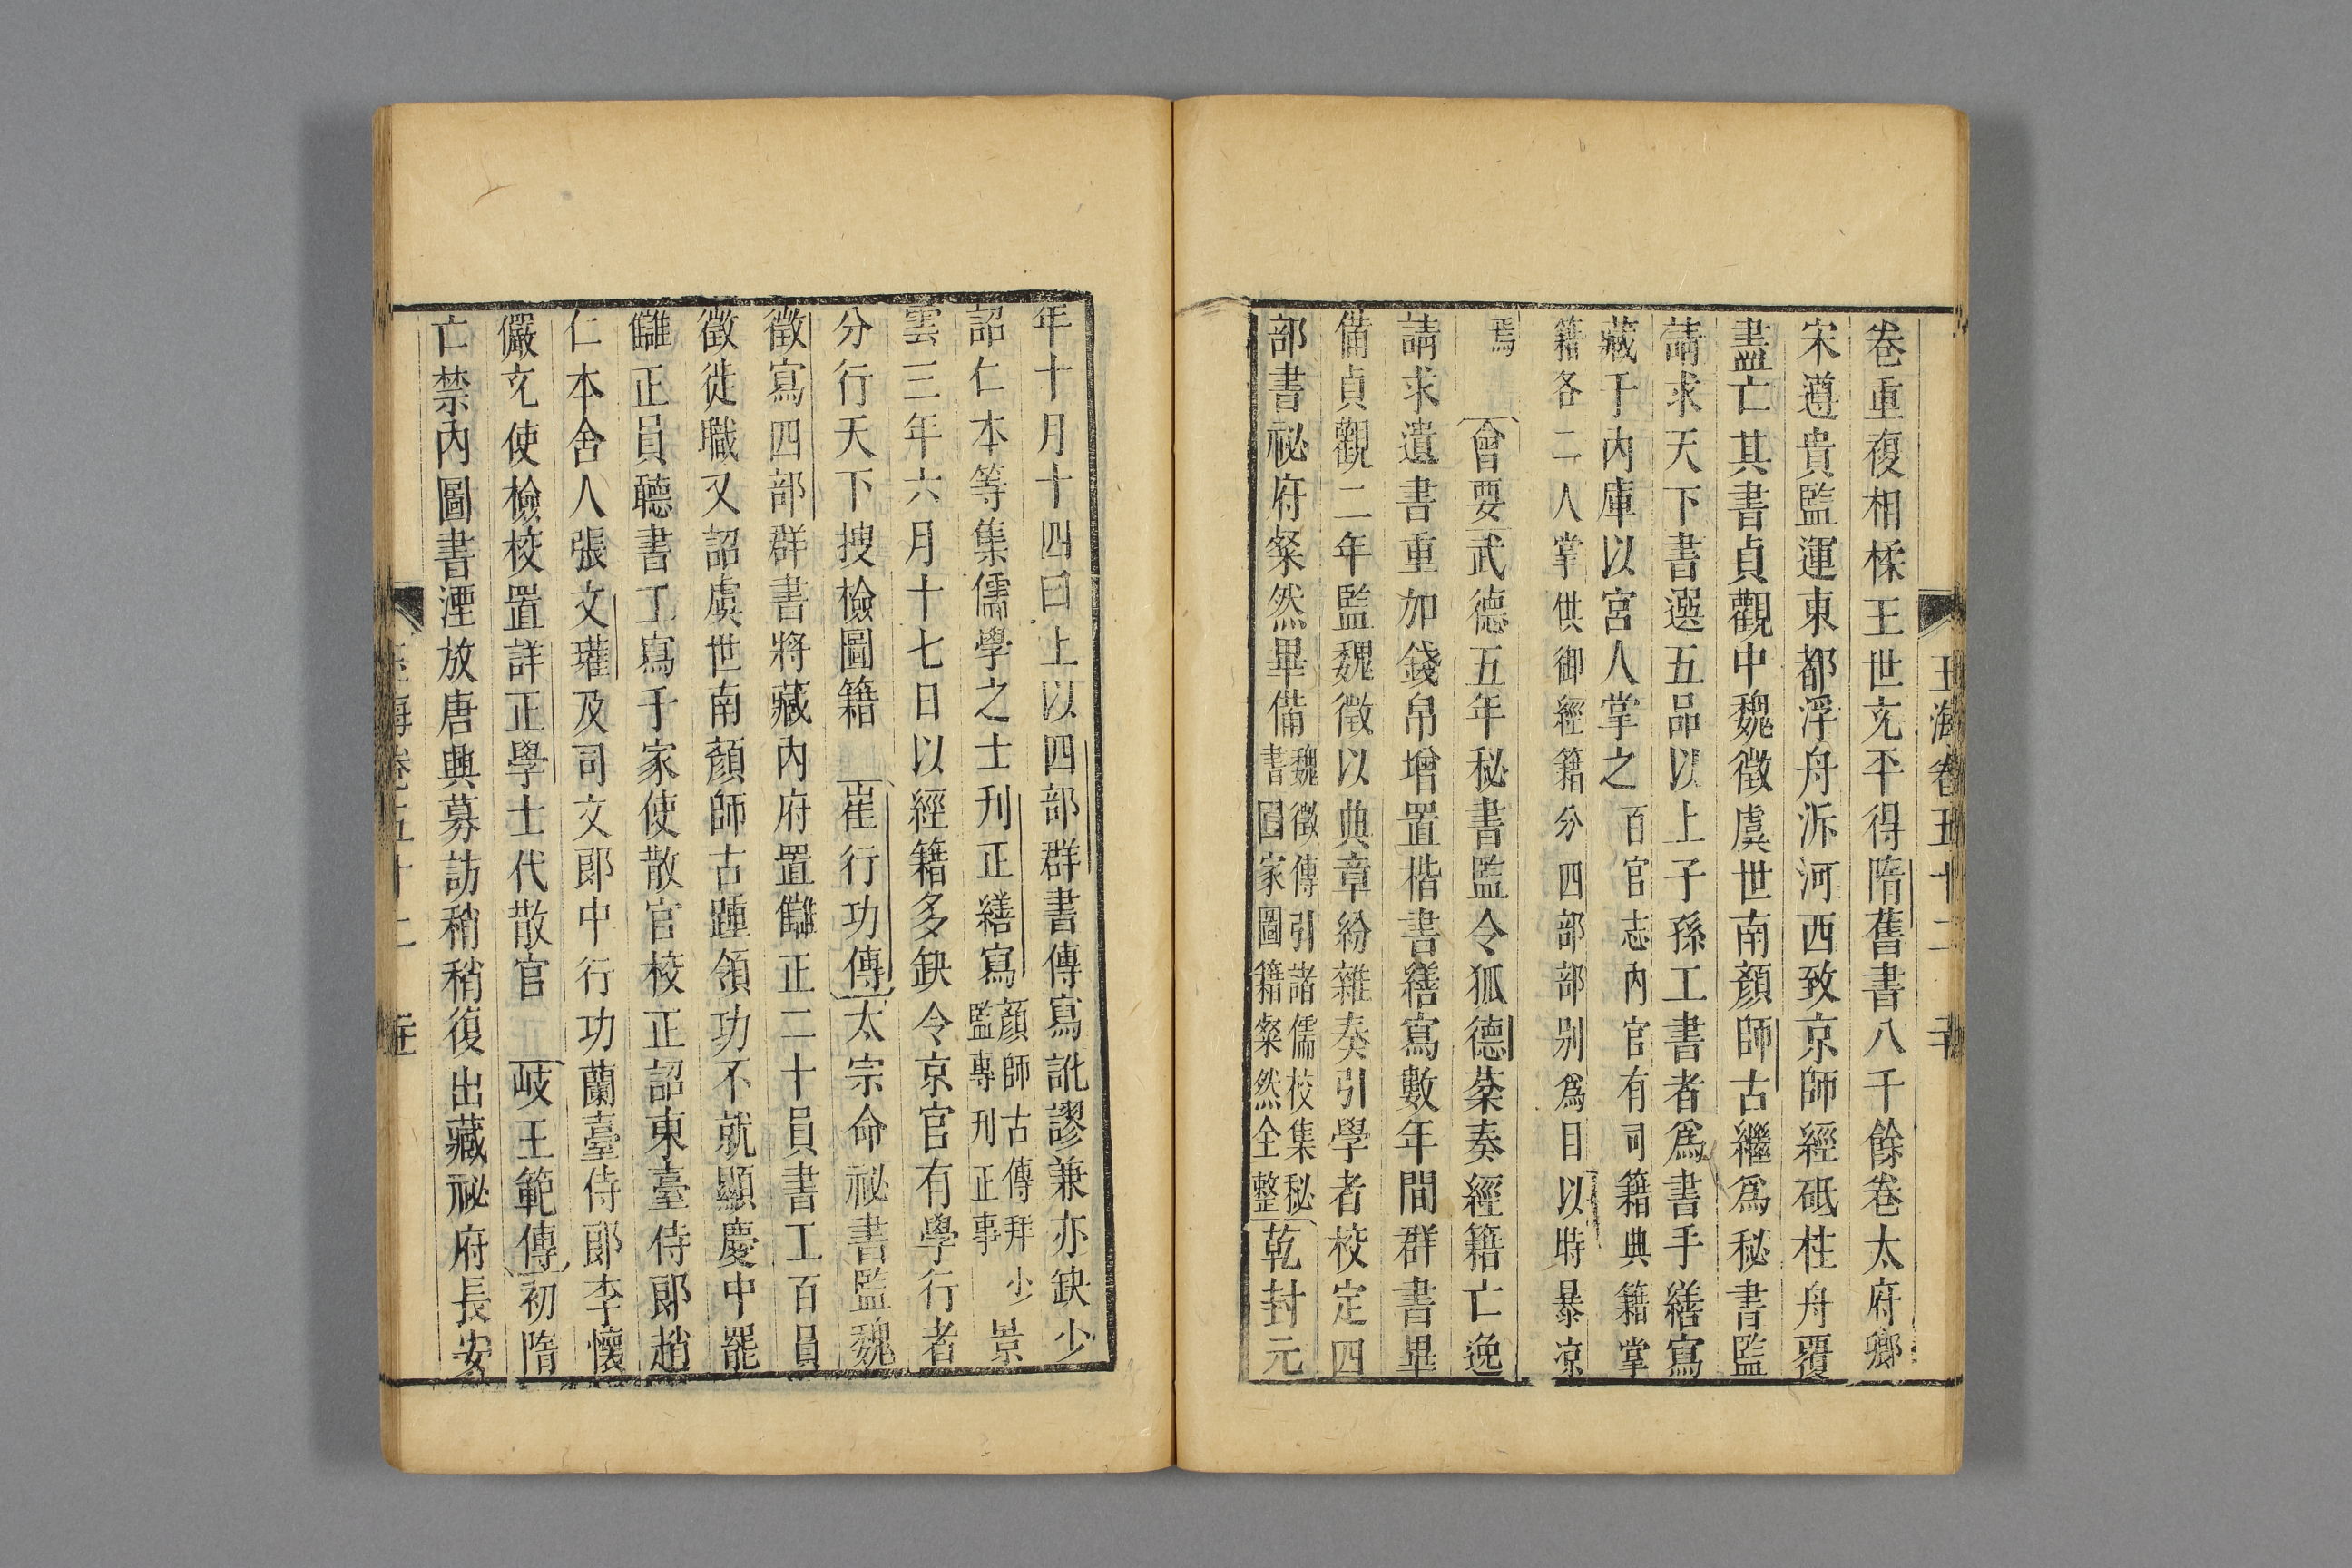 玉海卷五十二
卷重複相糅王世充平得隋舊書八千餘卷太府卿
宋遵貴監運東都浮舟泝河西致京師經砥柱舟覆
盡亡其書貞觀中魏徵虞世南顏師古繼爲秘書監
請求天下書選五品以上子孫工書者爲書手繕寫
藏于内庫以宮人掌之百官志内官有司籍典籍掌
籍各二人掌供御經籍分四部部别爲目以時暴凉
焉會要武德五年秘書監令狐德棻奏經籍亡逸
請求遺書重加錢帛增置楷書繕寫數年間群書畢
備貞觀二年監魏徵以典章紛雜奏引學者校定四
部書祕府粲然畢備魏徵傳引諸儒校集秘書圖家圖籍粲然全整乾封元
年十月十四日上以四部群書傳寫訛謬兼亦缺少
詔仁本等集儒學之士刊正繕寫顏師古傳拜少監專刊正事景
雲三年六月十七日以經籍多缺令京官有學行者
分行天下搜檢圖籍崔行功傳太宗命祕書監魏
徵寫四部群書將藏内府置讎正二十員書工百員
徵徙職又詔虞世南顏師古踵領功不就顯慶中罷
讎正員聽書工寫于家使散官校正詔東臺侍郎趙
仁本舍人張文瓘及司文郎中行功蘭臺侍郎李懷
儼充使檢校置詳正學士代散官岐王範傳初隋
亡禁内圖書湮放唐興募訪稍稍復出藏祕府長安
海卷五十二